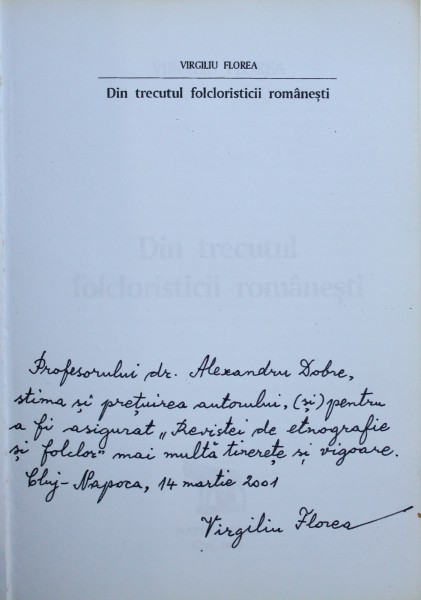 VIRGILIU FLOREA
Din trecutul folcloristicii românești
Din trecutul
folcloristicii românești
Profesorului dr. Alexandru Dobre,
stima și prețuirea autorului, (și) pentru
a fi asigurat „Revistei de etnografie
și folclor" mai multă tinerețe și vigoare.
Cluj-Napoca, 14 martie 2001
Virgiliu Florea